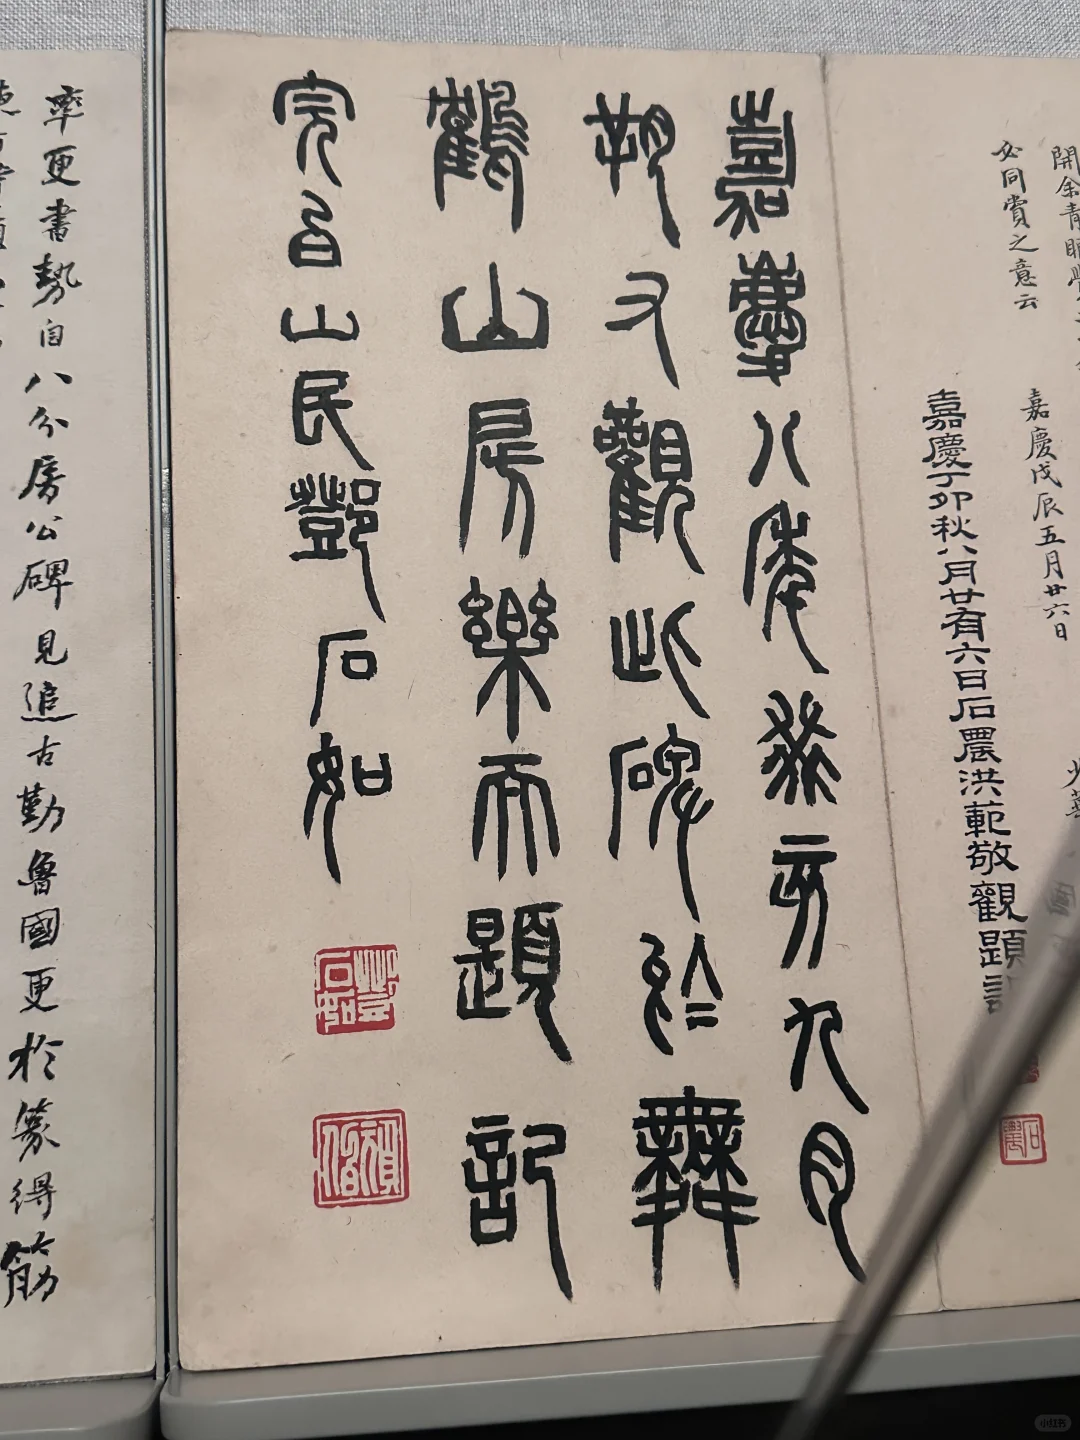 開余青眼
必同賞之意云
嘉慶戊辰五月廿六日
嘉慶丁卯秋八月廿有六日石農洪範敬觀題記
石農
嘉慶八年癸亥九月
朔又觀此碑於舞
鶴山房樂而題記
完白山民鄧石如
鄧石如
頑伯
率更書勢自八分房公碑見追古勤魯國更於篆得筋
小红书